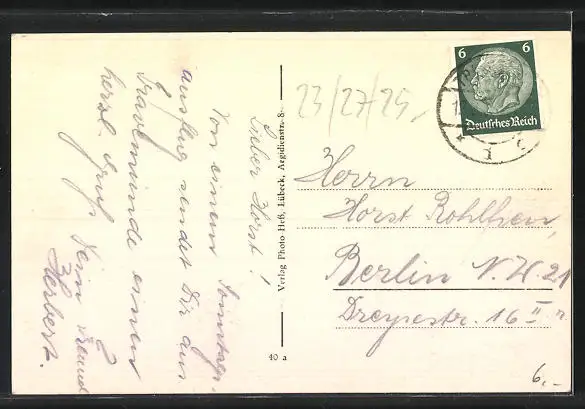 Lieber Horst!
Von einem Sonntags-
ausflug sendet Dir aus
Travemünde einen
herzl. Gruß
Dein Freund
Herbert.
Verlag Photo Heß, Lübeck, Aegidienstr. 8
40 a
23/27/25,
6 6
Deutsches Reich
Herrn
Horst
Berlin N.W. 21
Dreysestr. 16 II r
6,-